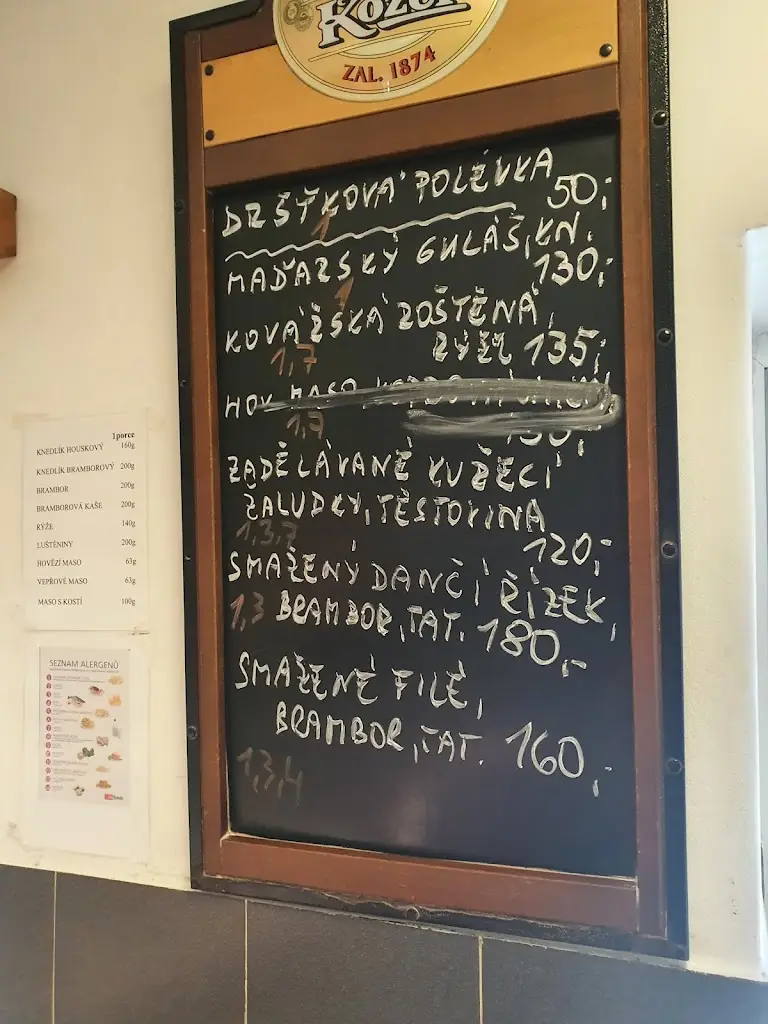 Kozel
ZAL. 1874
DRŠŤKOVÁ POLÉVKA
50,-
1
MAĎARSKÝ GULÁŠ, KN.
130,-
1
KOVÁŘSKÁ ROŠTĚNÁ,
RÝŽE 135,-
1,7
HOV. MASO
1,7
130,-
ZADĚLÁVANÉ KUŘECÍ
ŽALUDKY, TĚSTOVINA
1,3,7
120,-
SMAŽENÝ DANČÍ ŘÍZEK,
1,3 BRAMBOR, TAT. 180,-
SMAŽENÉ FILÉ,
BRAMBOR, TAT. 160,-
1,3,4
1porce
KNEDLÍK HOUSKOVÝ 160g
KNEDLÍK BRAMBOROVÝ 200g
BRAMBOR 200g
BRAMBOROVÁ KAŠE 200g
RÝŽE 140g
LUŠTĚNINY 200g
HOVĚZÍ MASO 63g
VEPŘOVÉ MASO 63g
MASO S KOSTÍ 100g
SEZNAM ALERGENŮ